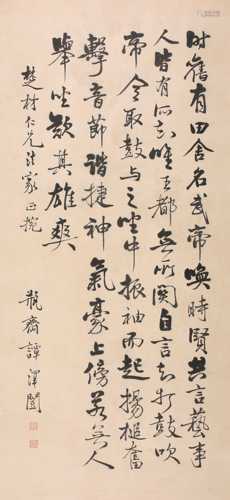 时舊有田舍名武帝喚時賢共言藝事
人皆有所知唯王都無所関自言知打鼓吹
帝令取鼓與之坐中振袖而起揚槌奮
擊音節諧捷神氣豪上傍若無人
舉坐歎其雄爽
楚材仁兄法家正捥
瓶齋譚澤闓